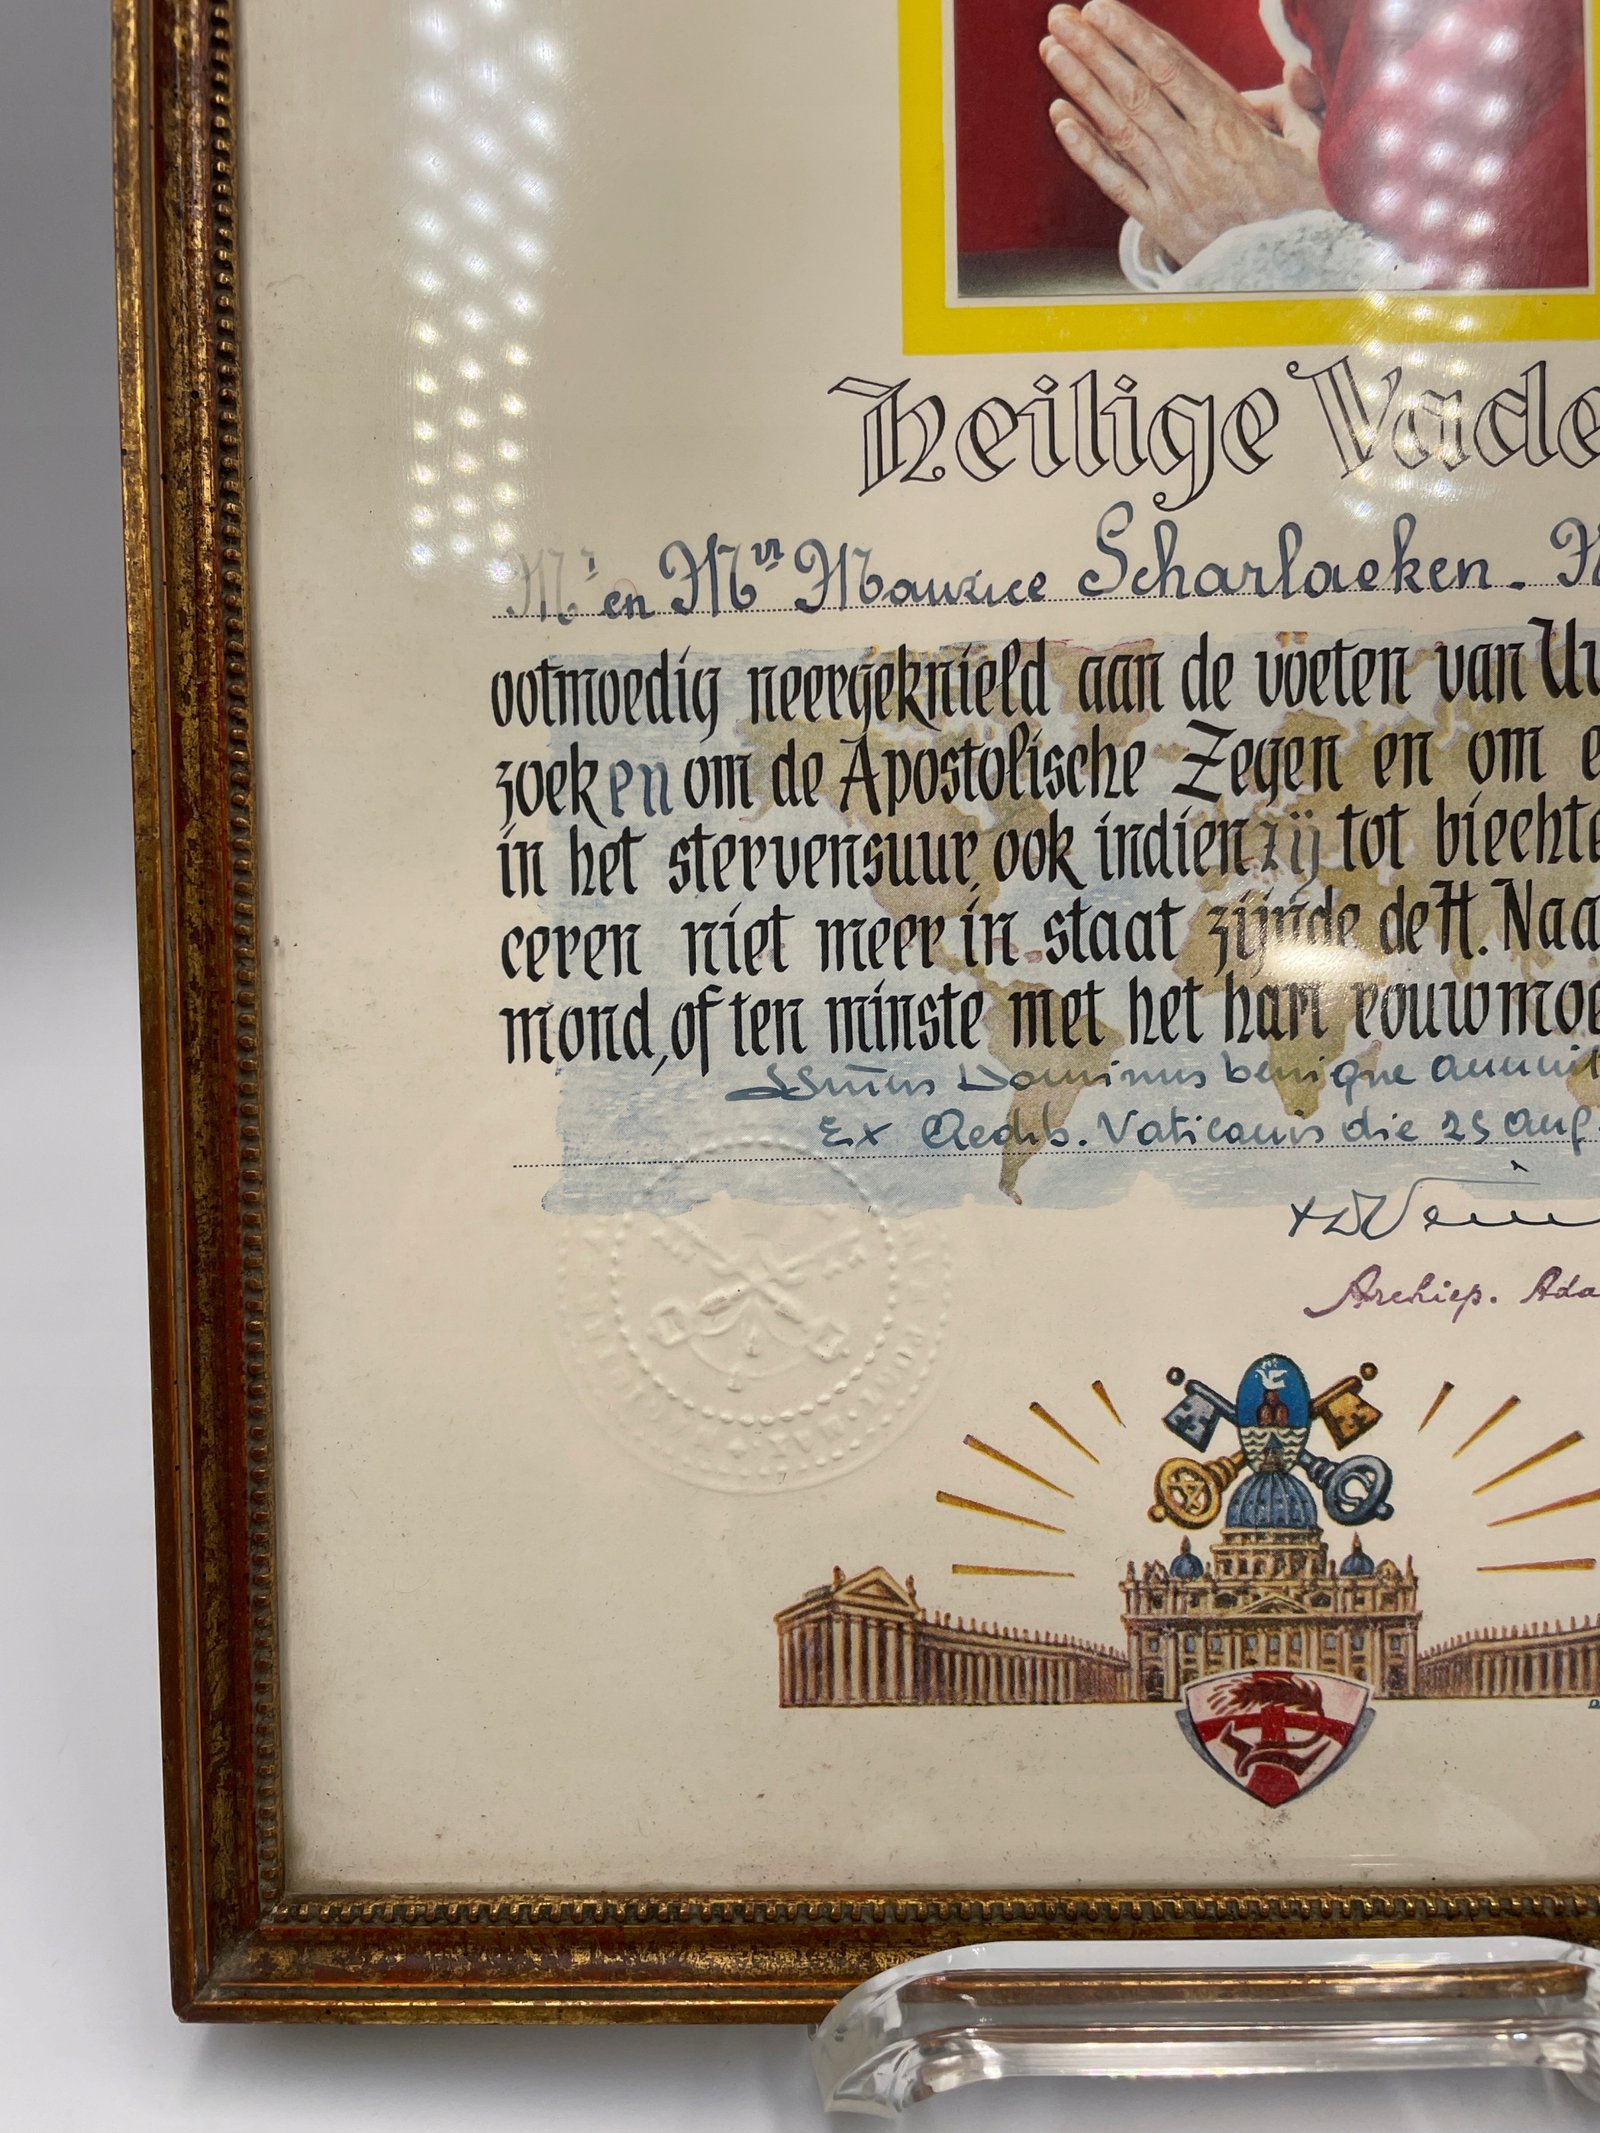 Heilige Vade
Mr en Mvr Maurice Scharlaeken -
ootmoedig neergeknield aan de voeten van Uw
zoeken om de Apostolische Zegen en om e
in het stervensuur, ook indien zij tot biechte
ceren niet meer in staat zijnde de H. Naa
mond, of ten minste met het hart rouwmoe
Dominus benigne annuit
Ex Aedib. Vaticanis die 25 Aug.
Archiep. Ada